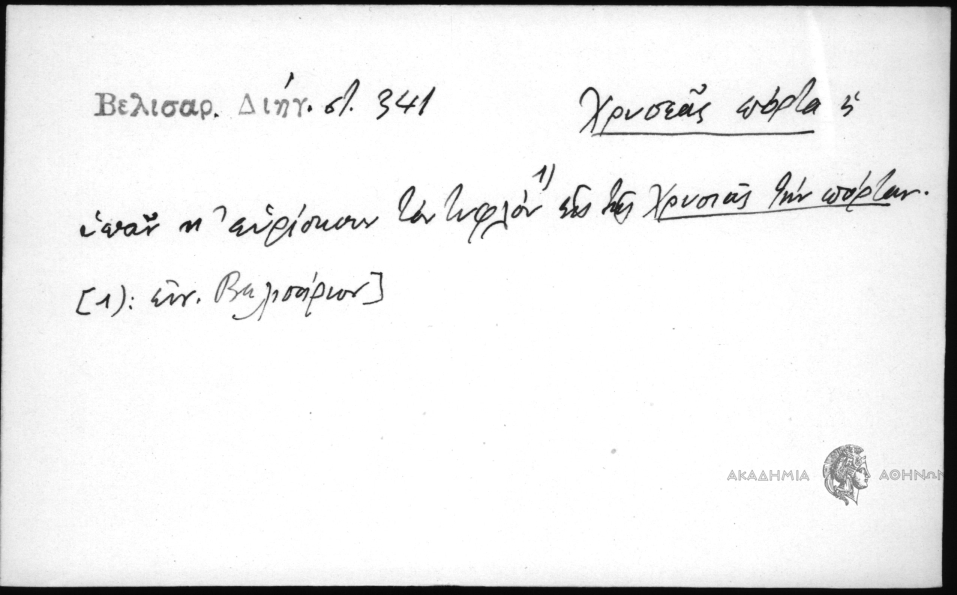 Βελισαρ. Διήγ. στ. 341
Χρυσεᾶς πόρτα ἡ
ὑπᾶν κ' εὑρίσκουν τὸν τυφλόν 1) εἰς τῆς Χρυσεᾶς τὴν πόρταν.
[1): ἐνν. Βελισάριον]
ΑΚΑΔΗΜΙΑ ΑΘΗΝΩΝ